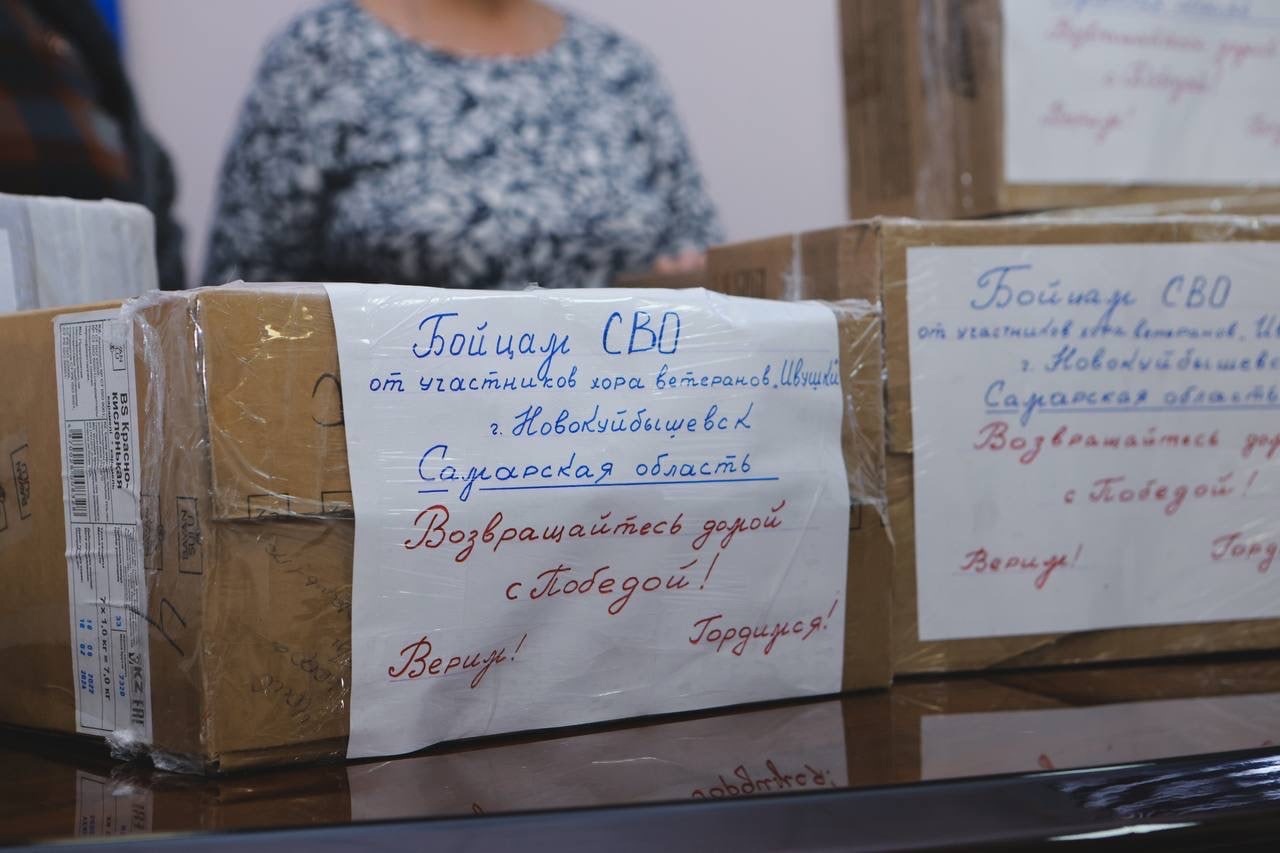 Бойцам СВО
от участников хора ветеранов „Ивушки
г. Новокуйбышевск
Самарская область
Возвращайтесь домой
с Победой!
Верим!
Гордимся!
BS Красно-
кисленькая
7 x 1,0 кг = 7,0 кг
KZ EAC
Бойцам СВО
от участников хора ветеранов, Ив
г. Новокуйбышевс
Самарская область
Возвращайтесь до
с Победой!
Верим!
Горд
с Победой!
Верим!